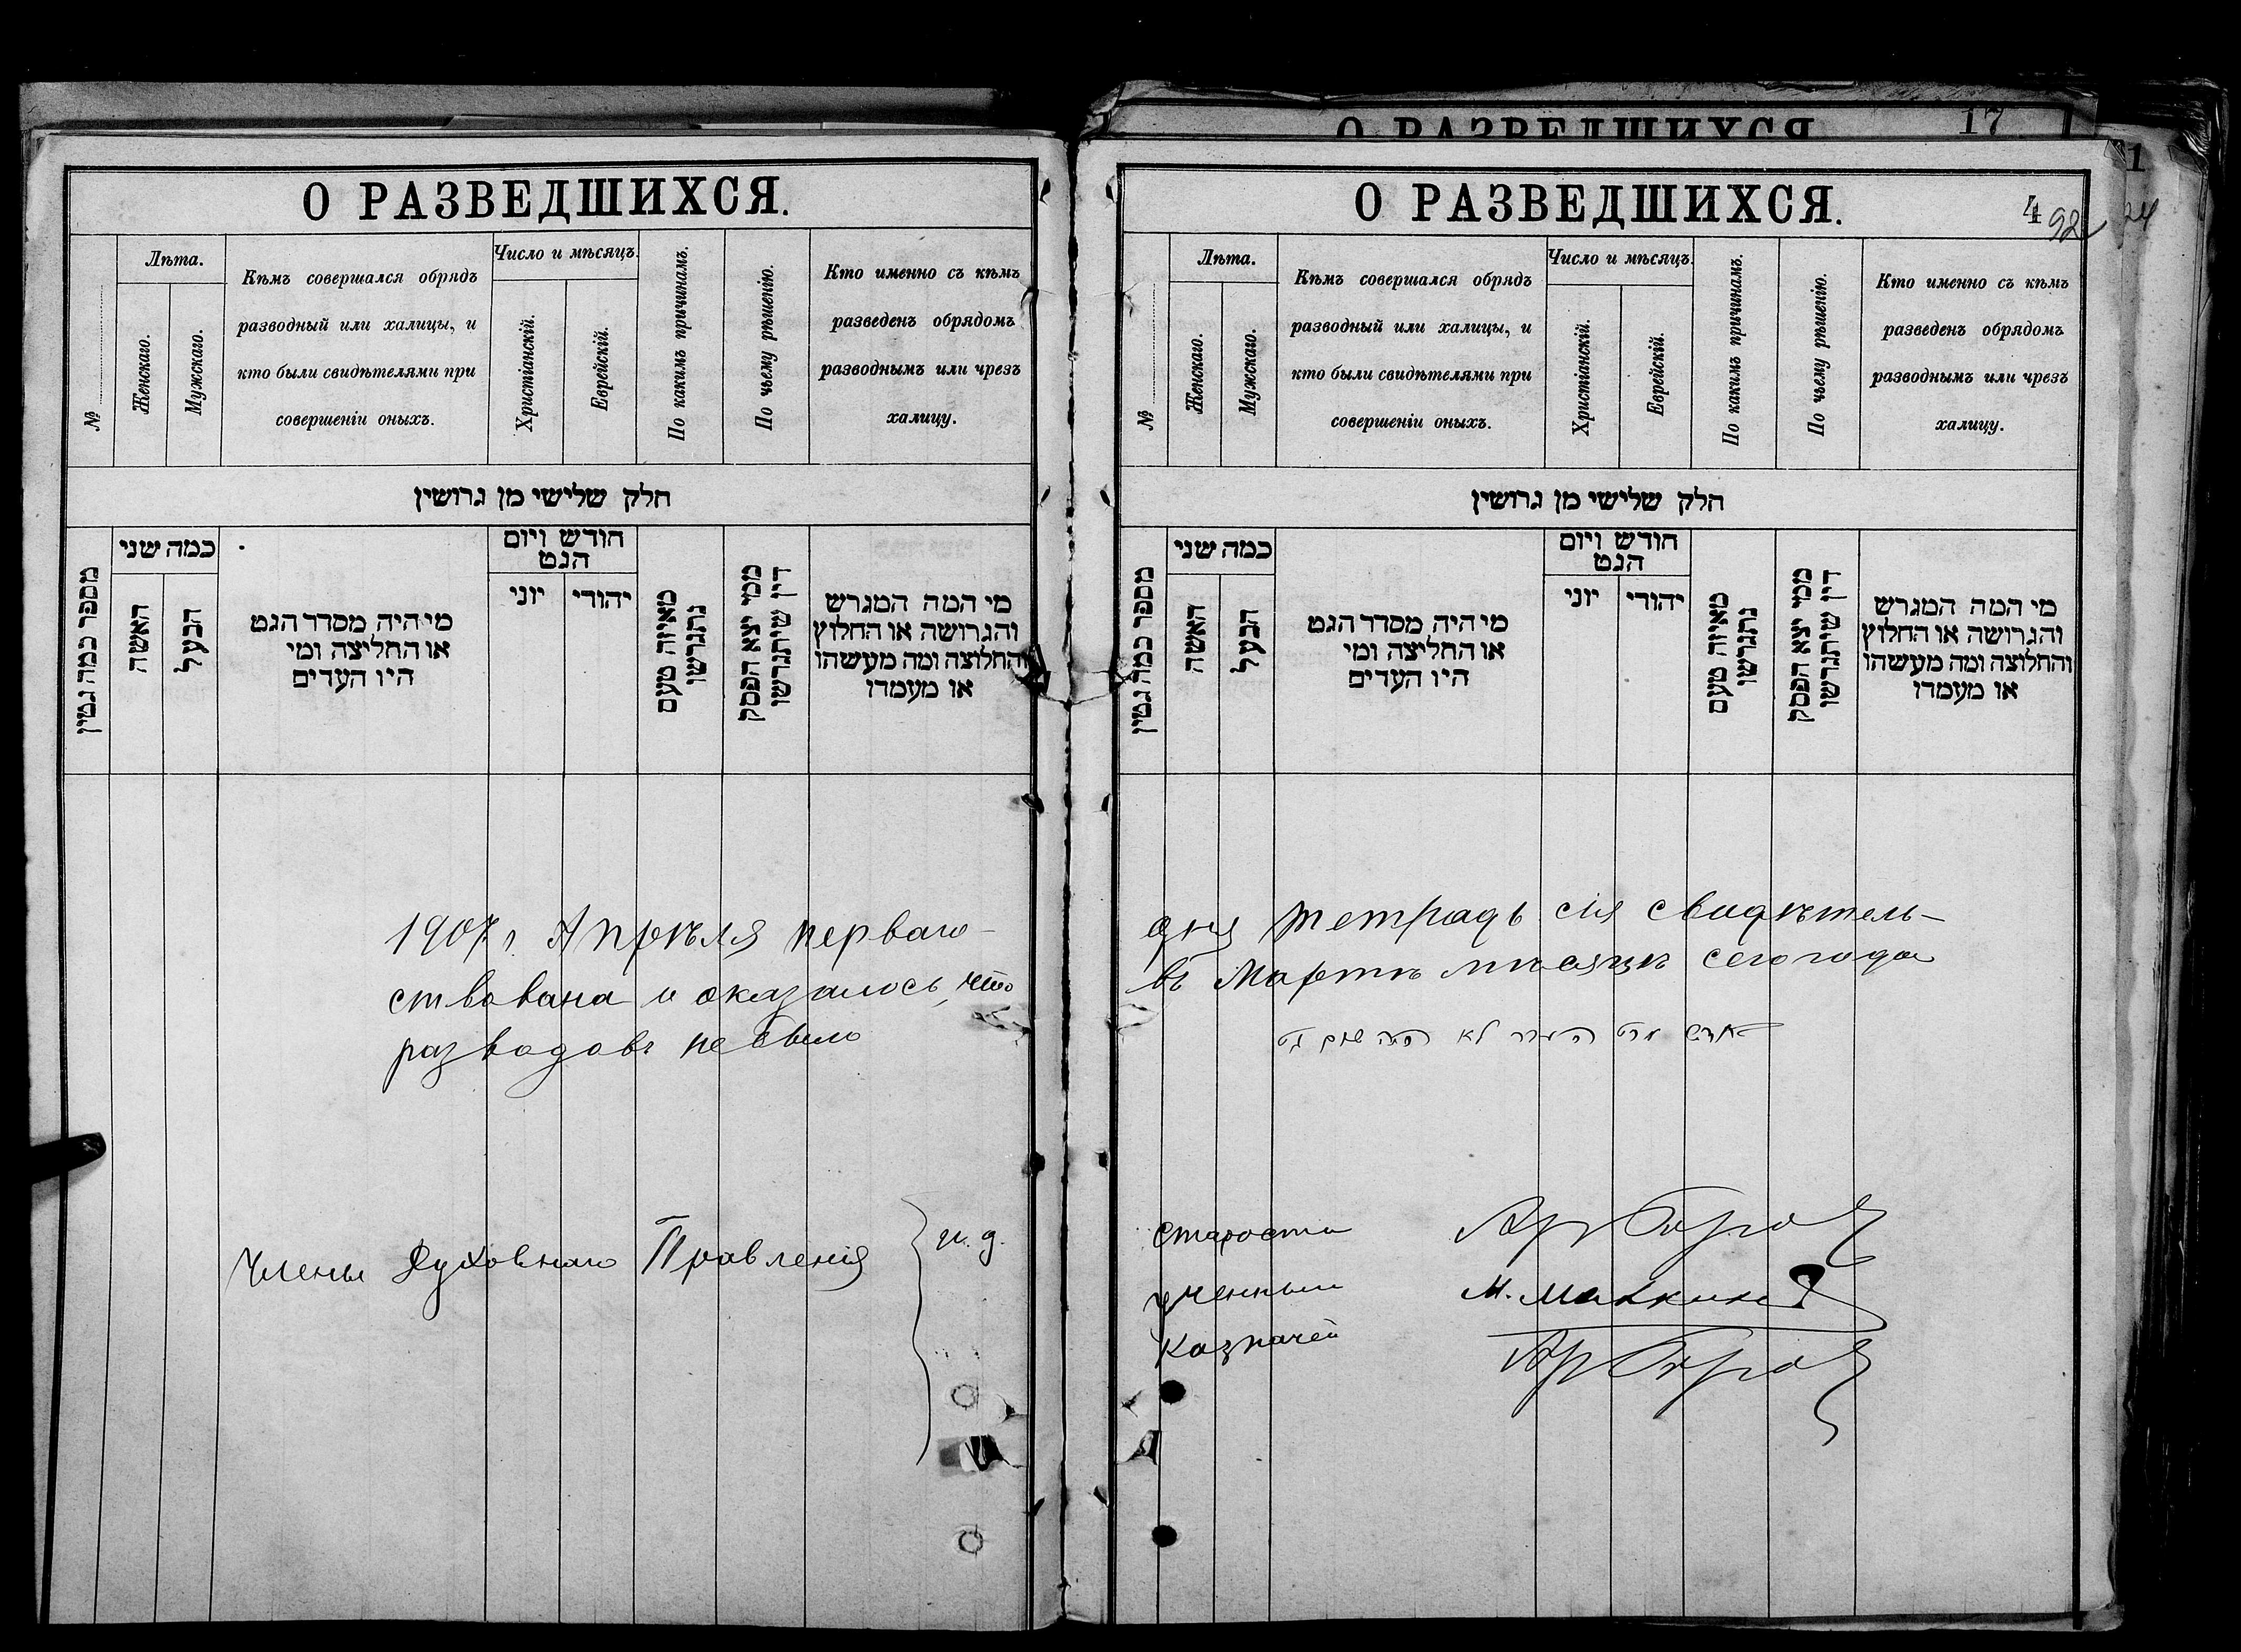 О РАЗВЕДШИХСЯ
17
1
О РАЗВЕДШИХСЯ.
№
Лѣта.
Женскаго.
Мужскаго.
Кѣмъ совершался обрядъ
разводный или халицы, и
кто были свидѣтелями при
совершеніи оныхъ.
Число и мѣсяцъ.
Христіанскій.
Еврейскій.
По какимъ причинамъ.
По чьему рѣшенію.
Кто именно съ кѣмъ
разведенъ обрядомъ
разводнымъ или чрезъ
халицу.
חלק שלישי מן גרושין
מספר כמה גטין
כמה שני
האשה
הבעל
מי היה מסדר הגט
או החליצה ומי
היו העדים
חודש ויום
הגט
יוני
יהודי
מאיזה טעם
נתגרשו
ממי יצא הפסק
דין שיתגרשו
מי המה המגרש
והגרושה או החלוץ
והחלוצה ומה מעשהו
או מעמדו
1907 г. Апрѣля перваго
ствована и оказалось, что
разводовъ не было
Члены Духовнаго Правленія
и. д.
О РАЗВЕДШИХСЯ.
4
92
24
№
Лѣта.
Женскаго.
Мужскаго.
Кѣмъ совершался обрядъ
разводный или халицы, и
кто были свидѣтелями при
совершеніи оныхъ.
Число и мѣсяцъ.
Христіанскій.
Еврейскій.
По какимъ причинамъ.
По чьему рѣшенію.
Кто именно съ кѣмъ
разведенъ обрядомъ
разводнымъ или чрезъ
халицу.
חלק שלישי מן גרושין
מספר כמה גטין
כמה שני
האשה
הבעל
מי היה מסדר הגט
או החליצה ומי
היו העדים
חודש ויום
הגט
יוני
יהודי
מאיזה טעם
נתגרשו
ממי יצא הפסק
דין שיתגרשו
מי המה המגרש
והגרושה או החלוץ
והחלוצה ומה מעשהו
או מעמדו
дня тетрадь сія свидѣтель-
въ Мартѣ мѣсяцѣ сего года
לא היה שום גט
Староста
Ученый М. Малкинъ
Казначей